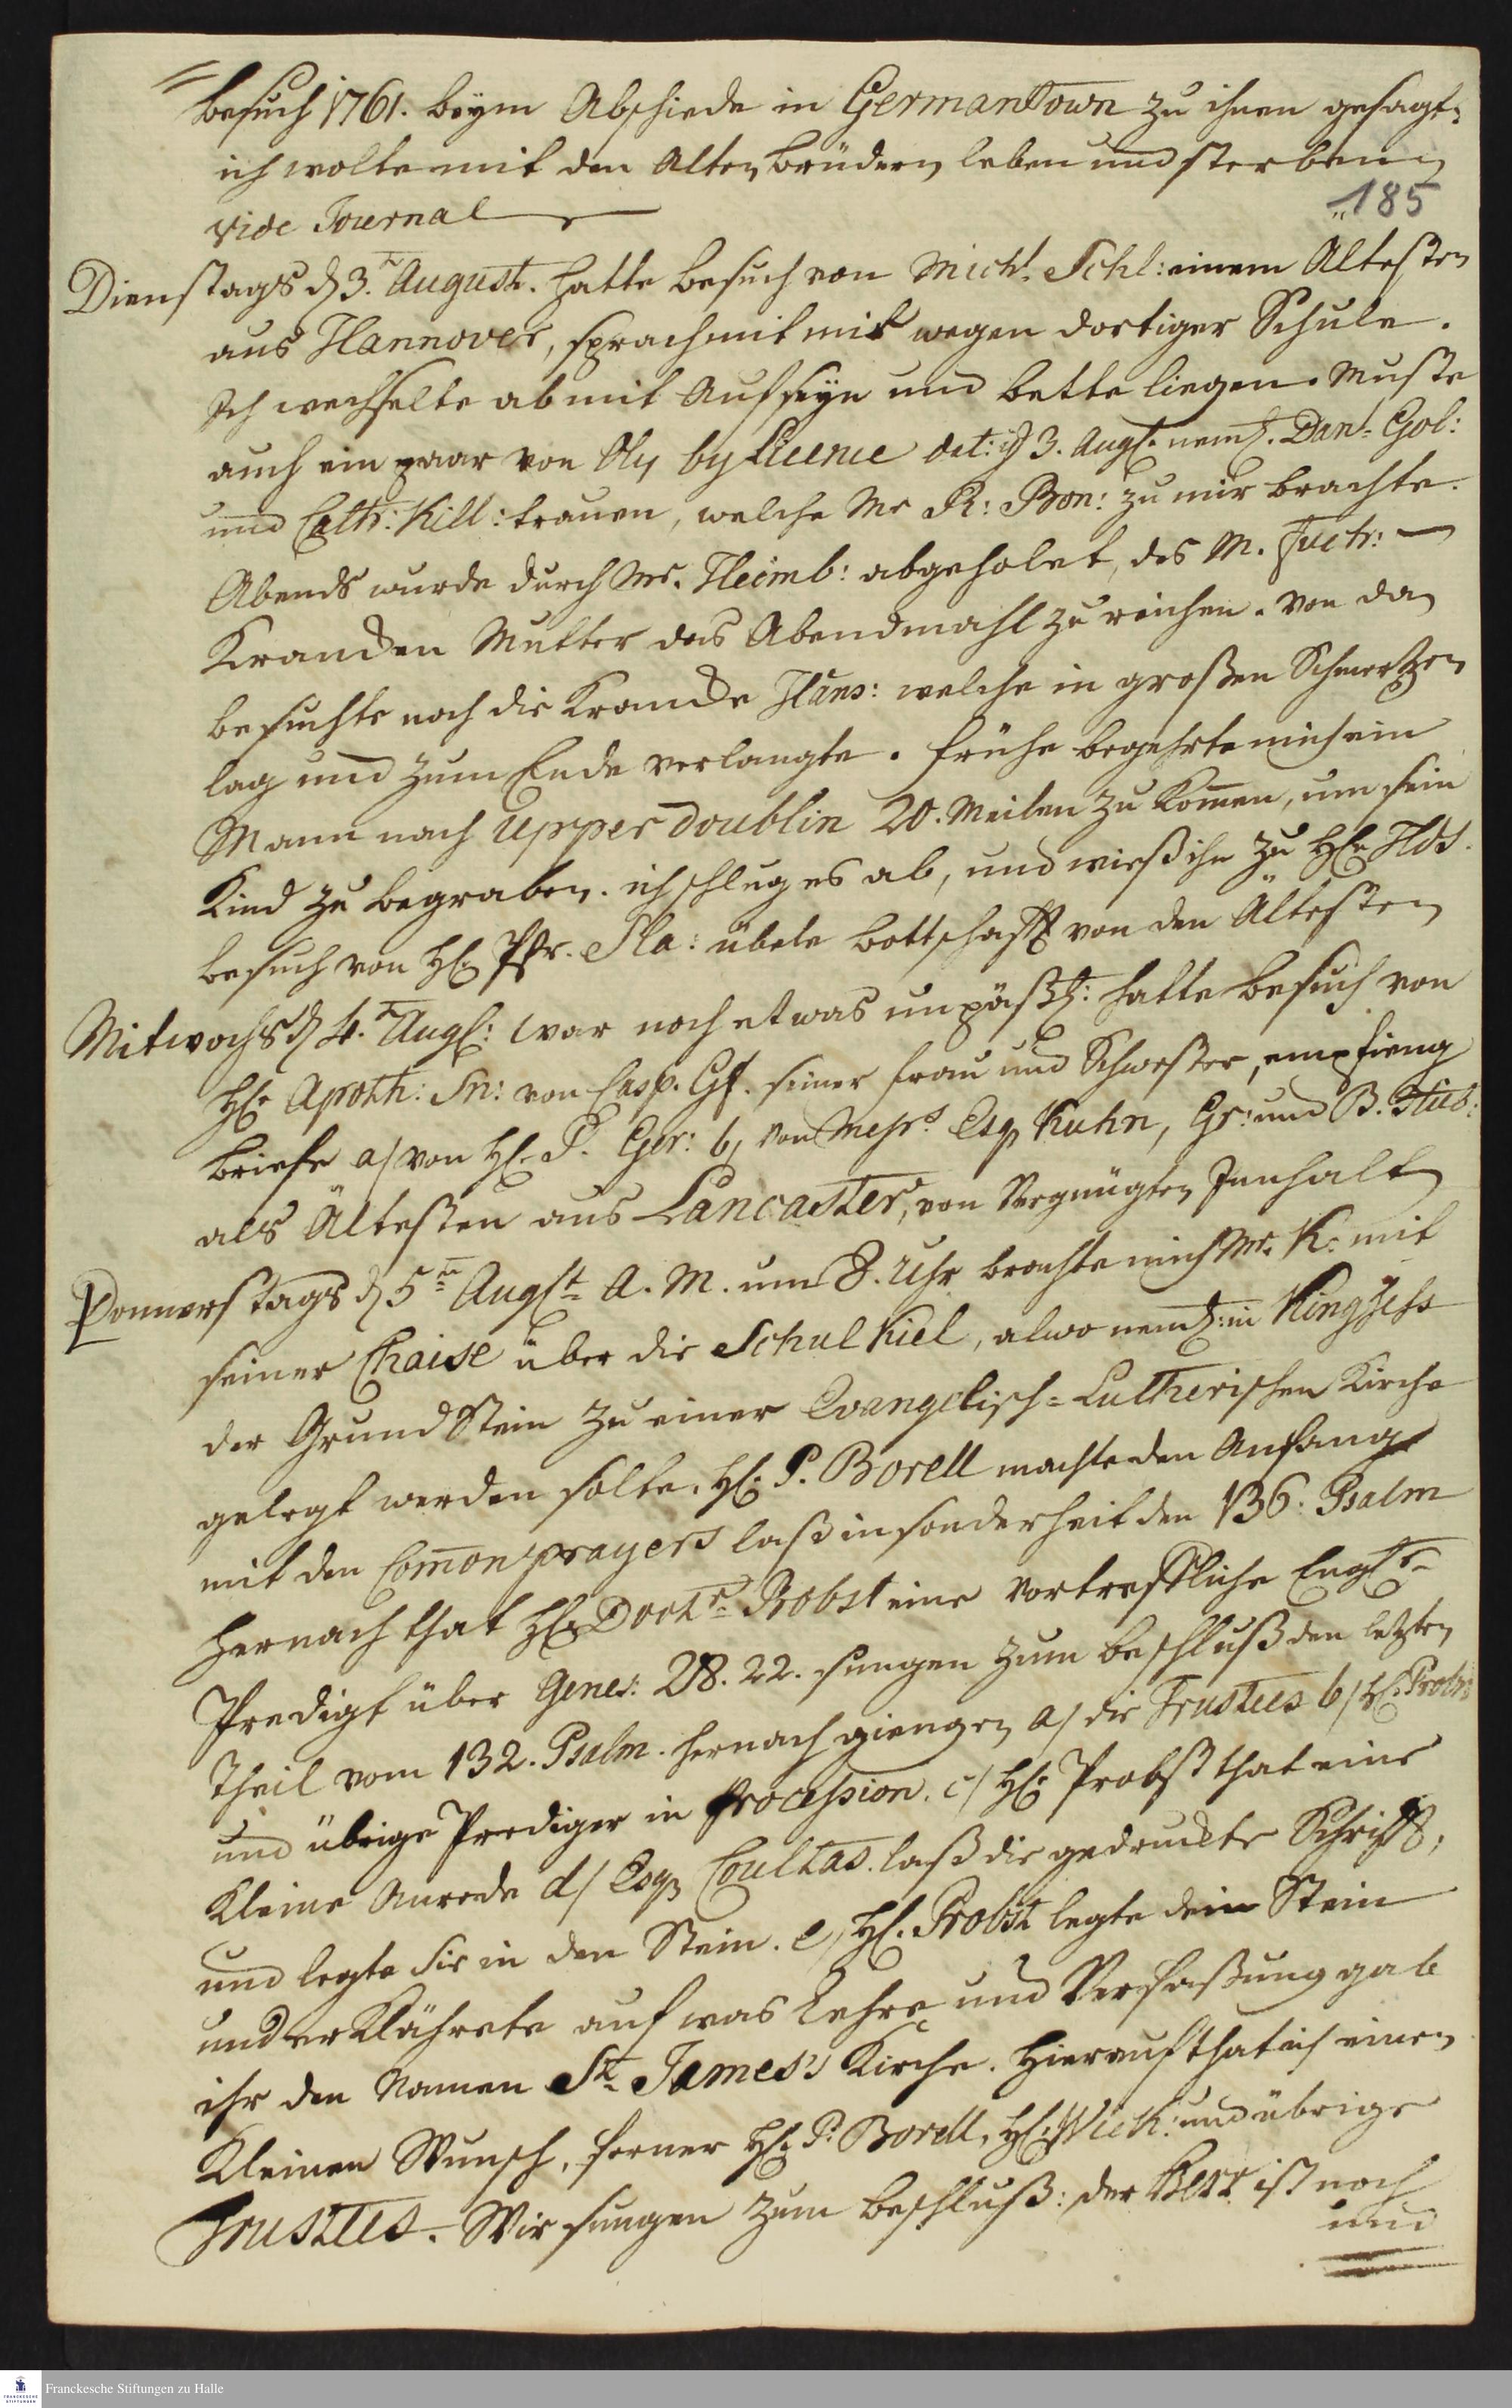 besuch 1761. beym Abschiede in Germantown zu ihnen gesagt,
ich wolte mit den Alten Brüdern leben und sterben
185
vide Journal
Dienstags d 3. August. hatte besuch von Mich: Schl: einem Ältesten
aus Hannover, sprach mit mir wegen dortiger Schule.
Ich wechselte ab mit Aufseyn und bette liegen. Muste
auch ein paar von by Licence dat: d 3. Augst. neml. Danl. Gol:
und Cath: Kill: trauen, welche Mr R: Bon: zu mir brachte.
Abends wurde durch Mr. Heimb: abgeholet, des M. Fuchs:
Krancken Mutter das Abendmahl zu reichen. Von da
besuchte noch die Krancke Häns: welche in großen Schmertzen
lag und zum Ende verlangte. frühe begehrte mich ein
Mann nach Upper doublin 20. Meilen zu kom̄en, um sein
Kind zu begraben. ich schlug es ab, und wieß ihn zu HE. Hdt.
besuch von HE. Pfr. Sla: übele bottschafft von den Ältesten
Mitwochs d 4. Augst: war noch etwas unpäßl: hatte besuch von
HE. Apoth: Sn: von Casp. Gf. seiner frau und Schwester, empfieng
briefe a/ von HE. P. Ger: b/ von Messrs. Esqr Kuhn, Gr: und B. Hub:
als Ältesten aus Lancaster, von Vergnügten Innhalt
Donnerstags d 5ten Augst A. M. um 8. Uhr brachte mich Mr. K: mit
seiner Chaise über die Schulkiel, alwo neml: in Kingsess
der Grund Stein zu einer Evangelisch=Lutherischen Kirche
gelegt werden solte. HE. P. Borell machte den Anfang
mit den Com̄on prayers laß in sonderheit den 136. Psalm
hernach that HE. Doct: Probst eine vortreffliche Engl:
Predigt über Genes: 28. 22. sungen zum beschluß den letzten
Theil vom 132. Psalm. hernach giengen a/ die Trustees b/ HE. Probst
und übrige Prediger in Procession. c/ HE. Probst that eine
Kleine Anrede d/ Esqr Coultas. laß die gedruckte Schrifft,
und legte sie in den Stein. e/ HE. Probst legte den Stein
und erklährete auf was Lehre und Verfaßung gab
ihr den Namen St. James's Kirche. Hierauf that ich einen
Kleinen Wunsch, ferner HE. P. Borell, HE. Wich: und übrige
Trustees. Wir sungen zum beschluß: der Herr ist noch
und
Franckesche Stiftungen zu Halle